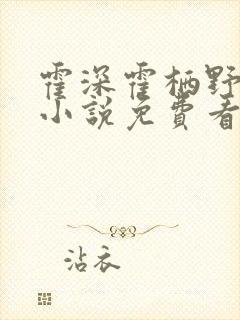 霍深霍栖野
小说免费看
沾衣